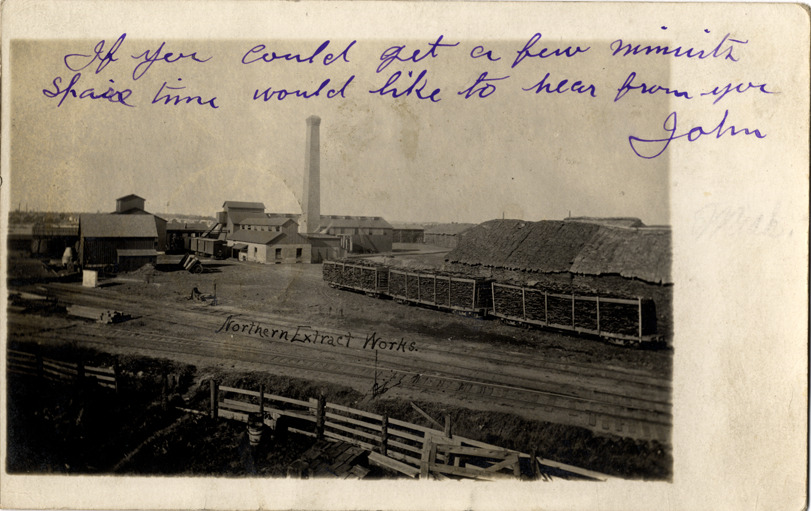 If you could get a few minuits
Spaice time would like to hear from you
John
Northern Extract Works.